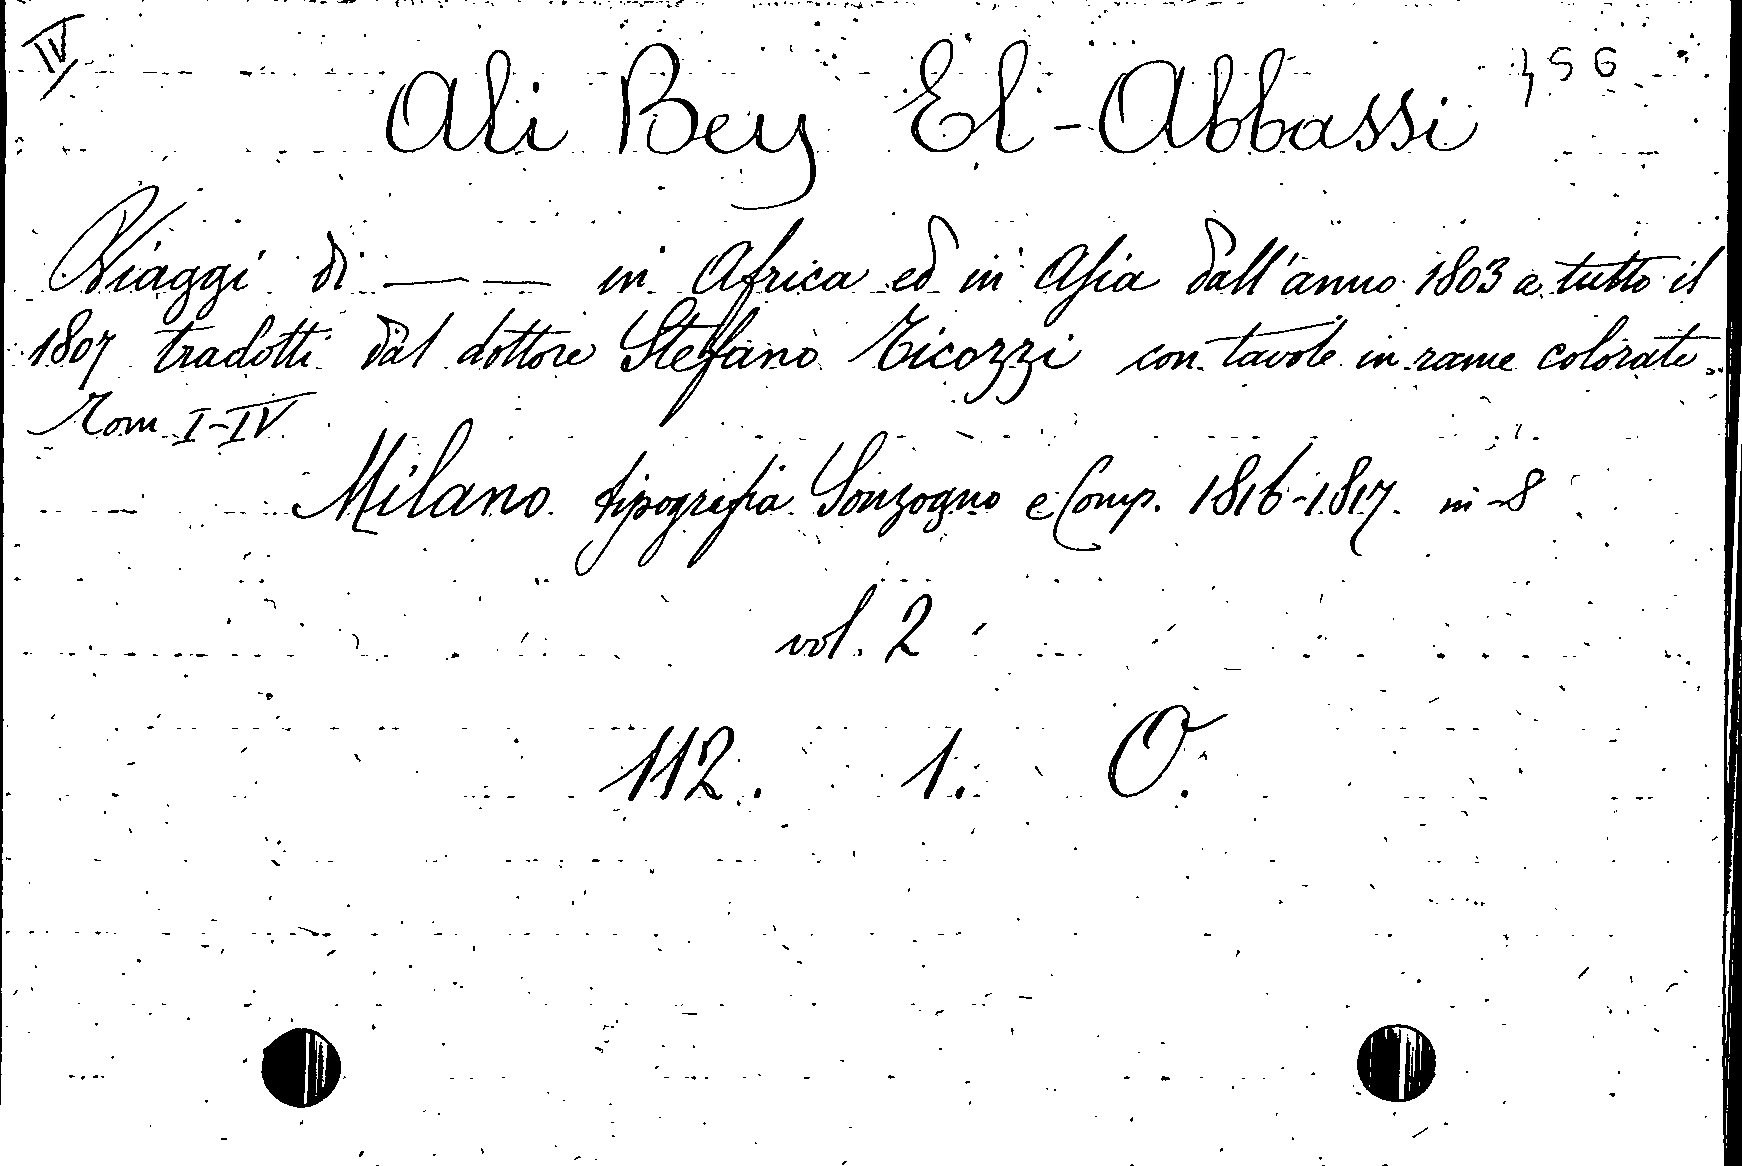 IV
456
Ali Bey El-Abbassi
Viaggi di — — in Africa ed in Asia dall'anno 1803 a tutto il
1807 tradotti dal dottore Stefano Ticozzi con tavole in rame colorate.
Tom I-IV
Milano tipografia Sonzogno e Comp. 1816-1817. in-8
vol. 2
112. 1. O.